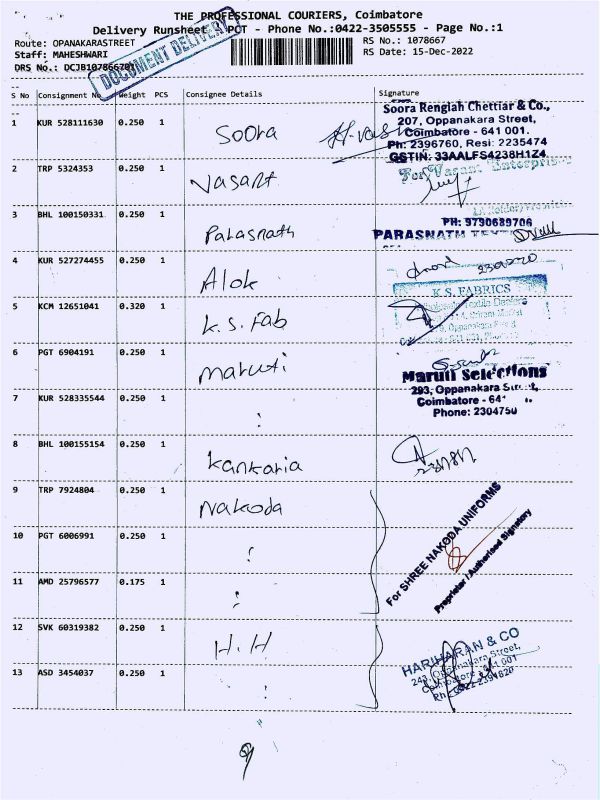 THE PROFESSIONAL COURIERS, Coimbatore
Delivery Runsheet POT - Phone No.:0422-3505555 - Page No.:1
Route: OPANAKARASTREET RS No.: 1078667
Staff: MAHESHWARI RS Date: 15-Dec-2022
DRS No.: DCJB107866701
DOCUMENT DELIVERY
S No Consignment No Weight PCS Consignee Details Signature
1 KUR 528111630 0.250 1 Soora
Soora Rengiah Chettiar & Co.,
207, Oppanakara Street,
Coimbatore - 641 001.
Ph: 2396760, Resi: 2235474
GSTIN: 33AALFS4238H1Z4
2 TRP 5324353 0.250 1 Vasant
For Vasant Enterprises
3 BHL 100150331 0.250 1 Parasnath
PH: 9790689706
PARASNATH
4 KUR 527274455 0.250 1 Alok
5 KCM 12651041 0.320 1 K.S. Fab
K.S. FABRICS
6 PGT 6904191 0.250 1 maruti
Maruti Selections
293, Oppanakara Street,
Coimbatore - 641
Phone: 2304750
7 KUR 528335544 0.250 1 :
8 BHL 100155154 0.250 1 Kankaria
9 TRP 7924804 0.250 1 Nakoda
For SHREE NAKODA UNIFORMS
Proprietor / Authorised Signatory
10 PGT 6006991 0.250 1 :
11 AMD 25796577 0.175 1 :
12 SVK 60319382 0.250 1 H.H
HARIHARAN & CO
Oppanakara Street,
Coimbatore - 641 001
13 ASD 3454037 0.250 1 :